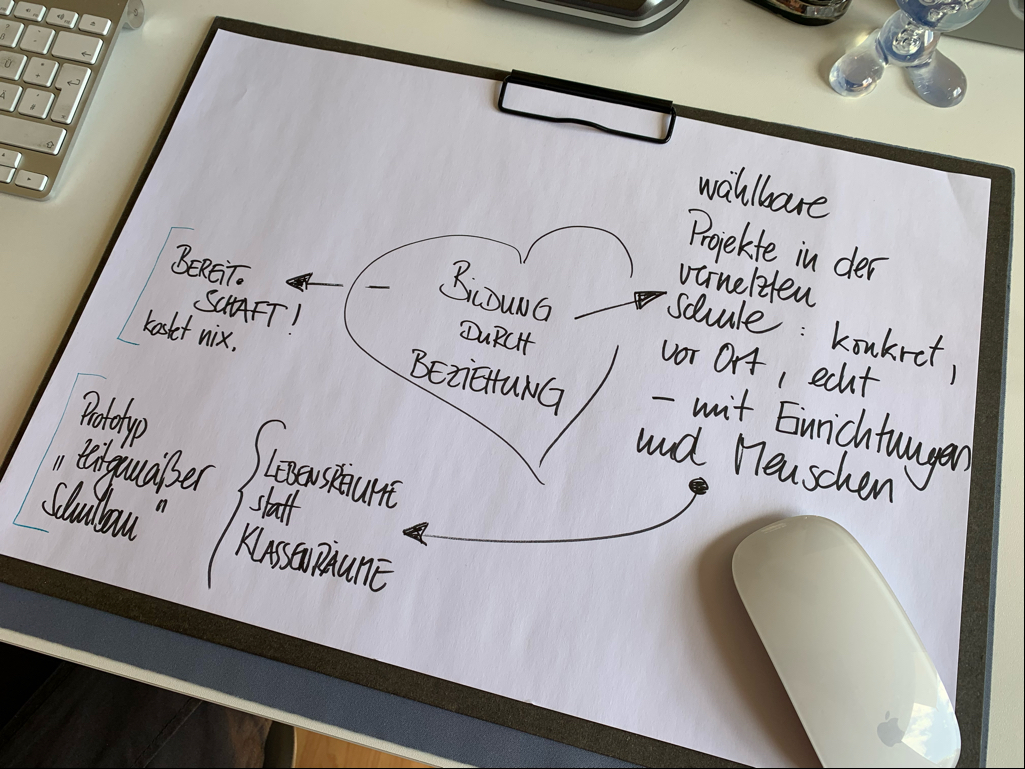 wählbare
Projekte in der
vernetzten
Schule : konkret,
vor Ort, echt
- mit Einrichtungen
und Menschen
BILDUNG
DURCH
BEZIEHUNG
BEREIT.
SCHAFT!
kostet nix.
Prototyp
"zeitgemäßer
Schulbau"
LEBENSRÄUME
statt
KLASSENRÄUME